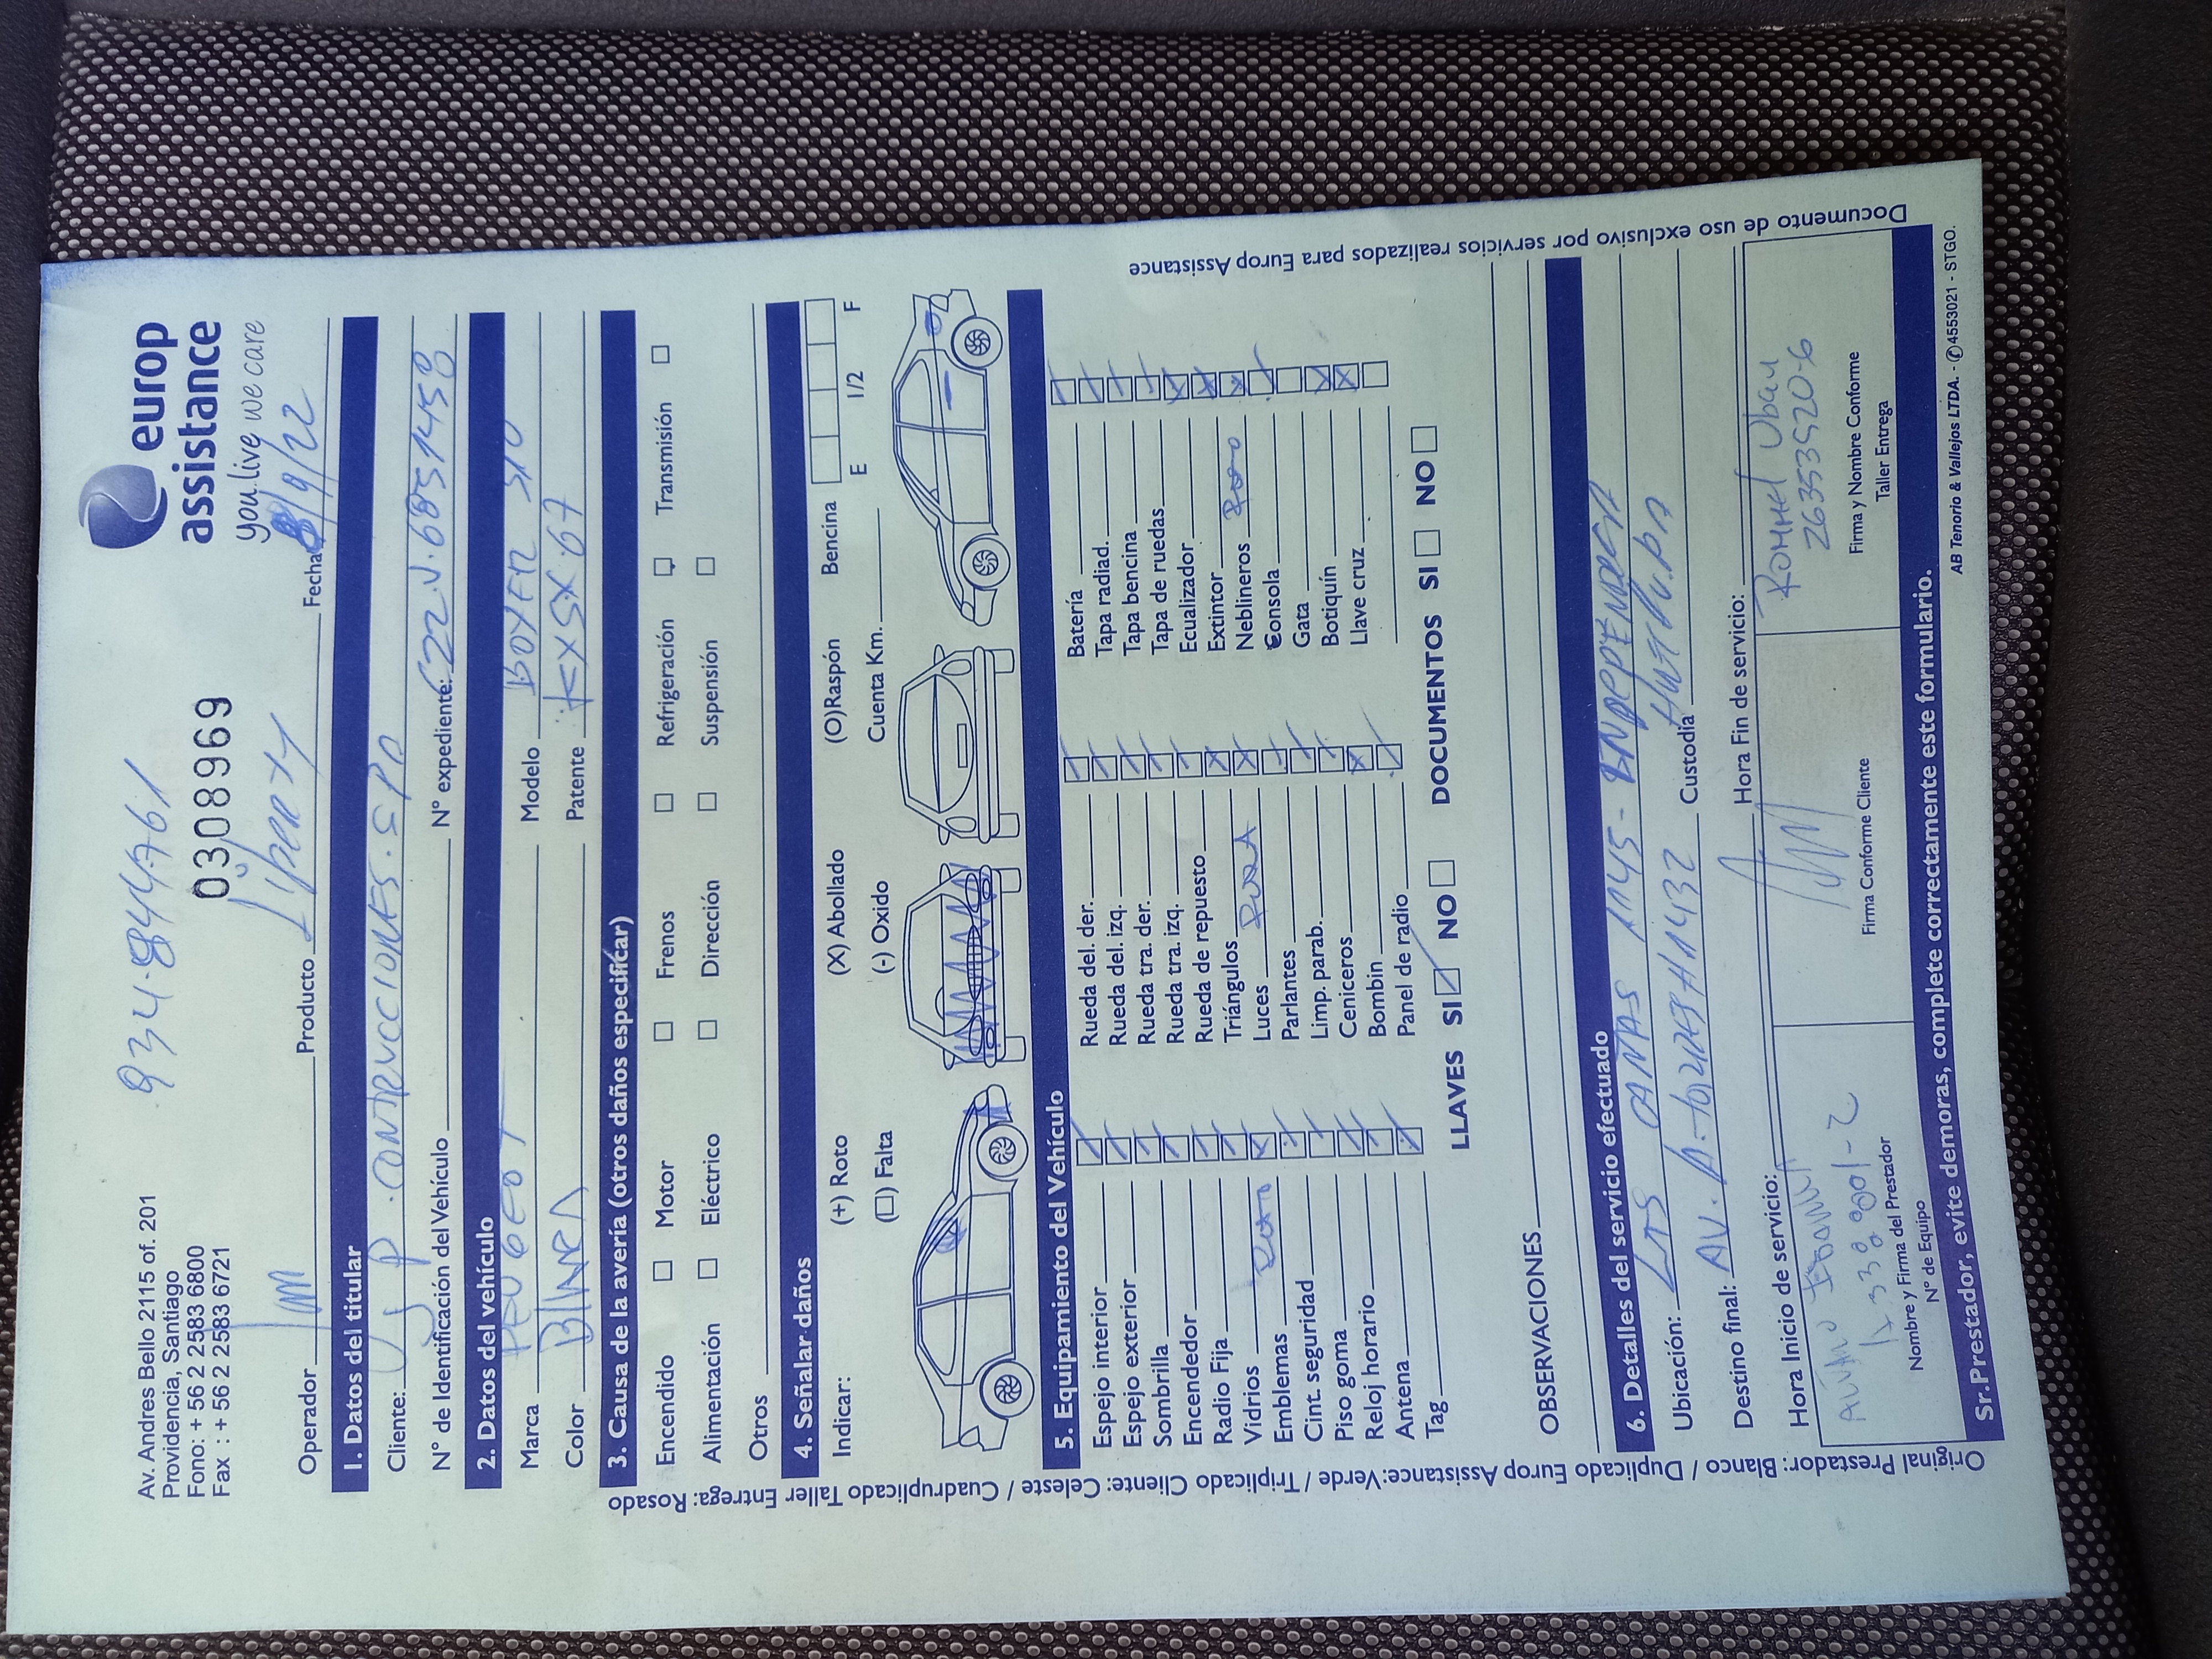 934.844761
Av. Andres Bello 2115 of. 201
Providencia, Santiago
Fono: + 56 2 2583 6800
Fax : + 56 2 2583 6721
0308969
europ
assistance
you live we care
Operador Producto Liberty Fecha 8/9/22
1. Datos del titular
Cliente: J P. CONTRVCCIONES. SPA
N° de Identificación del Vehículo N° expediente: 22.V.6851458
2. Datos del vehículo
Marca PEUGEOT Modelo BOXER
Color BLANCA Patente KXSX.67
3. Causa de la avería (otros daños especificar)
Encendido Motor Frenos Refrigeración Transmisión
Alimentación Eléctrico Dirección Suspensión
Otros
4. Señalar daños
Indicar: (+) Roto (X) Abollado (O)Raspón Bencina E 1/2 F
(□) Falta (-) Oxido Cuenta Km.
5. Equipamiento del Vehículo
Espejo interior Rueda del. der. Batería
Espejo exterior Rueda del. izq. Tapa radiad.
Sombrilla Rueda tra. der. Tapa bencina
Encendedor Rueda tra. izq. Tapa de ruedas
Radio Fija Rueda de repuesto Ecualizador
Vidrios Roto Triángulos Extintor
Emblemas Luces Rota Neblineros Roto
Cint. seguridad Parlantes Consola
Piso goma Limp. parab. Gata
Reloj horario Ceniceros Botiquín
Antena Bombin Llave cruz
Tag Panel de radio
LLAVES SI NO DOCUMENTOS SI NO
OBSERVACIONES
6. Detalles del servicio efectuado
Ubicación: LAS CAÑAS 1145 - INDEPENDENCIA
Destino final: AV. 1432 Custodia
Hora Inicio de servicio: Hora Fin de servicio:
Rommel Ubau
26353520-6
Nombre y Firma del Prestador
N° de Equipo
Firma Conforme Cliente
Firma y Nombre Conforme
Taller Entrega
Sr. Prestador, evite demoras, complete correctamente este formulario.
AB Tenorio & Vallejos LTDA. - ✆4553021 - STGO.
Original Prestador: Blanco / Duplicado Europ Assistance:Verde / Triplicado Cliente: Celeste / Cuadruplicado Taller Entrega: Rosado
Documento de uso exclusivo por servicios realizados para Europ Assistance